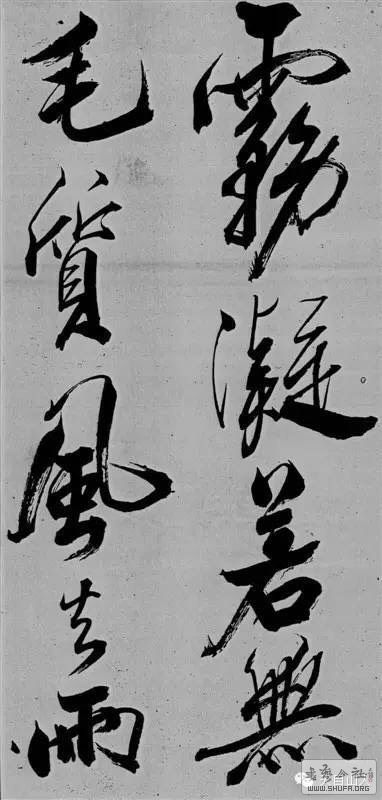 霧凝若無
毛質風去雨
书艺公社
WWW.SHUFA.ORG